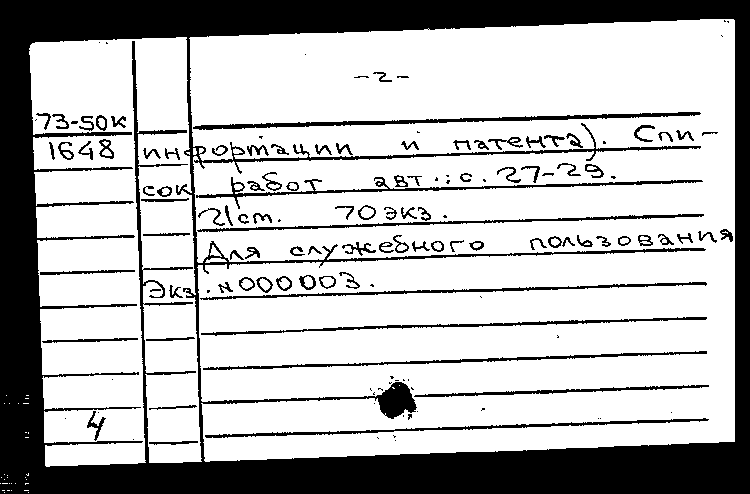 -2-
73-50к
1648 информации и патента). Спи-
сок работ авт.: с. 27-29.
21см. 70экз.
Для служебного пользования
Экз. №000003.
4